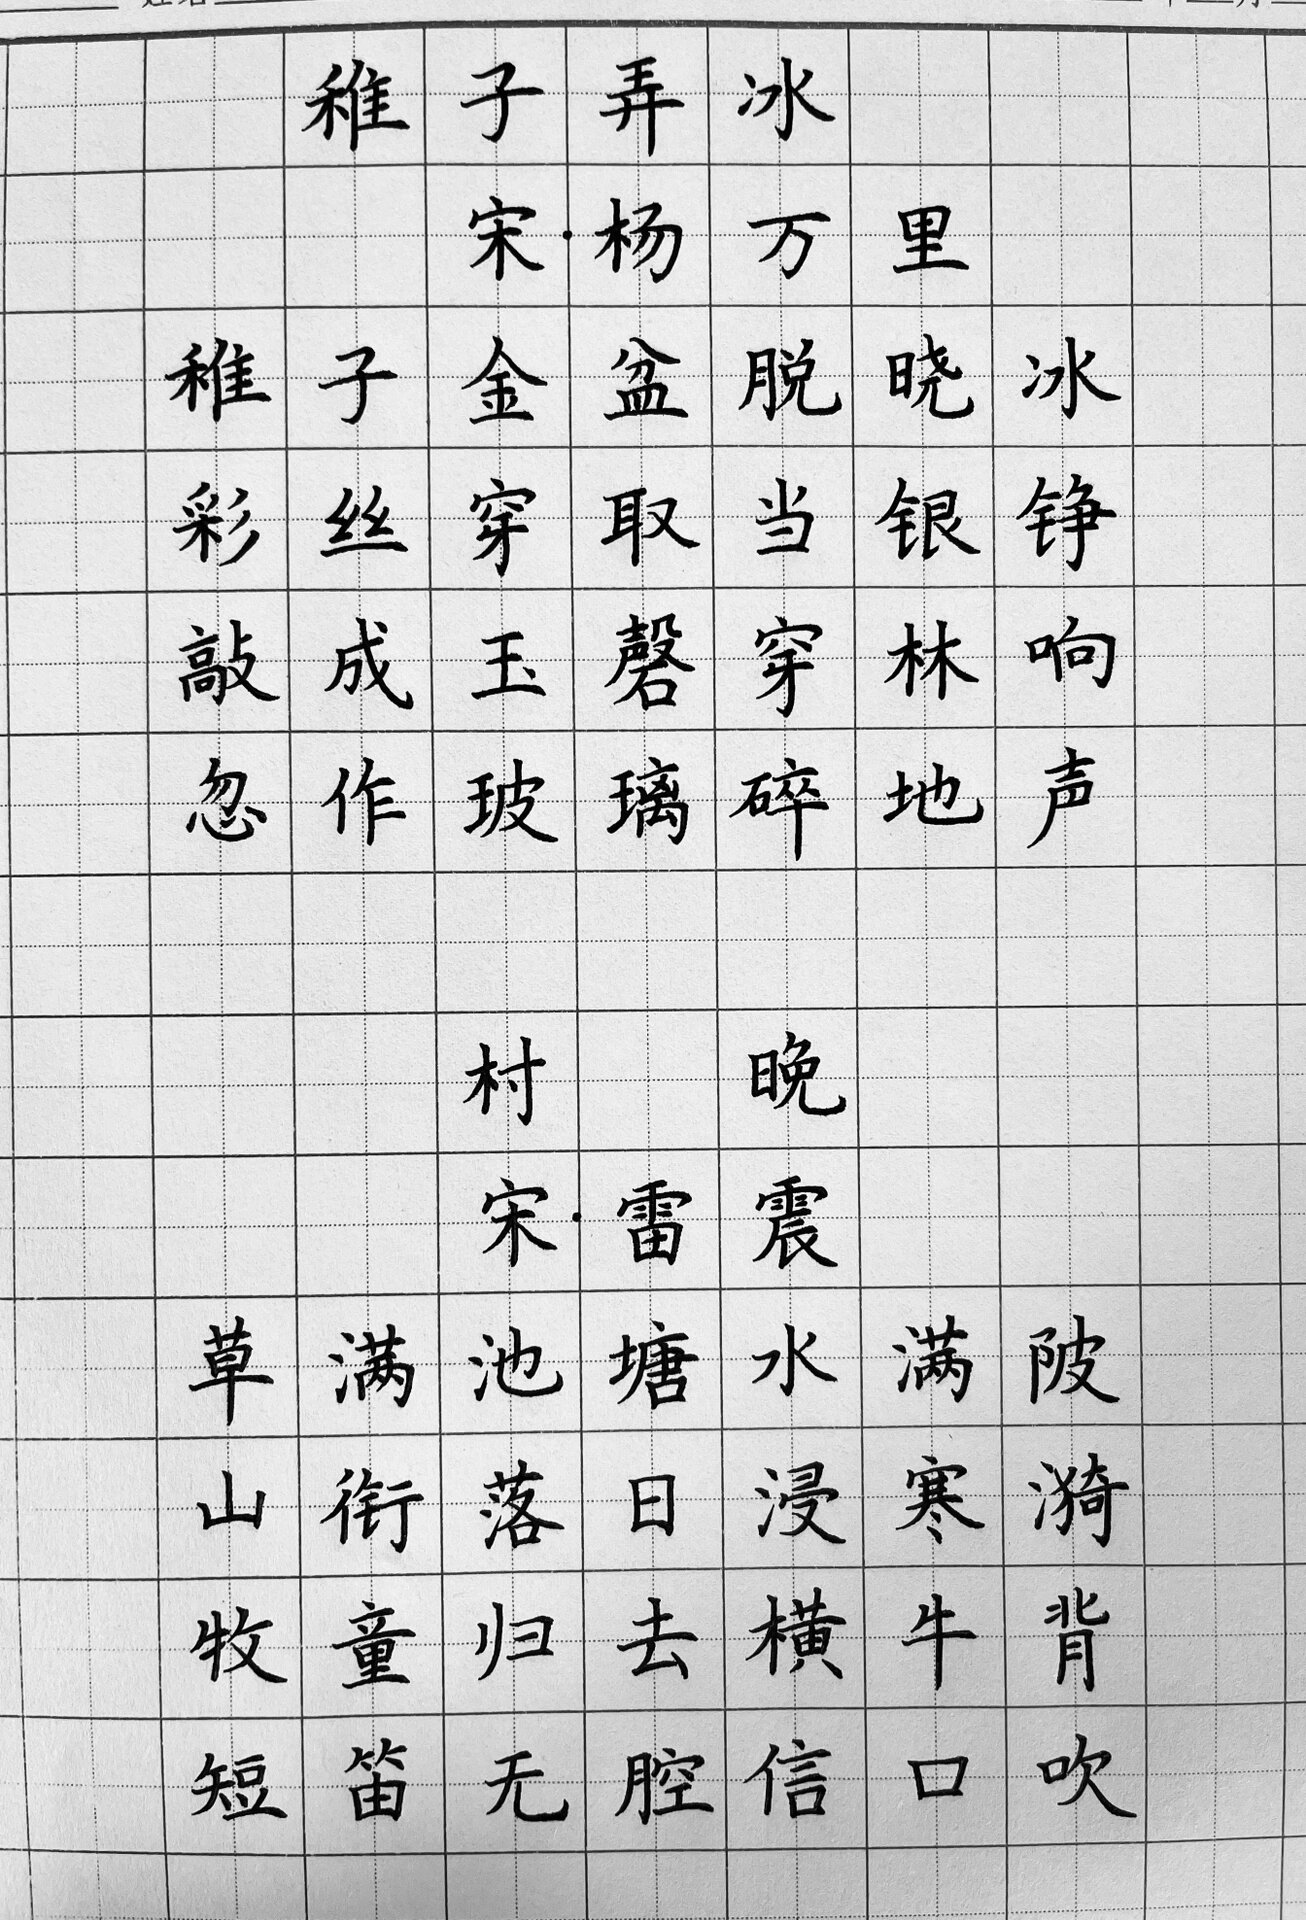 稚子弄冰
宋·杨万里
稚子金盆脱晓冰
彩丝穿取当银铮
敲成玉磬穿林响
忽作玻璃碎地声
村 晚
宋·雷震
草满池塘水满陂
山衔落日浸寒漪
牧童归去横牛背
短笛无腔信口吹